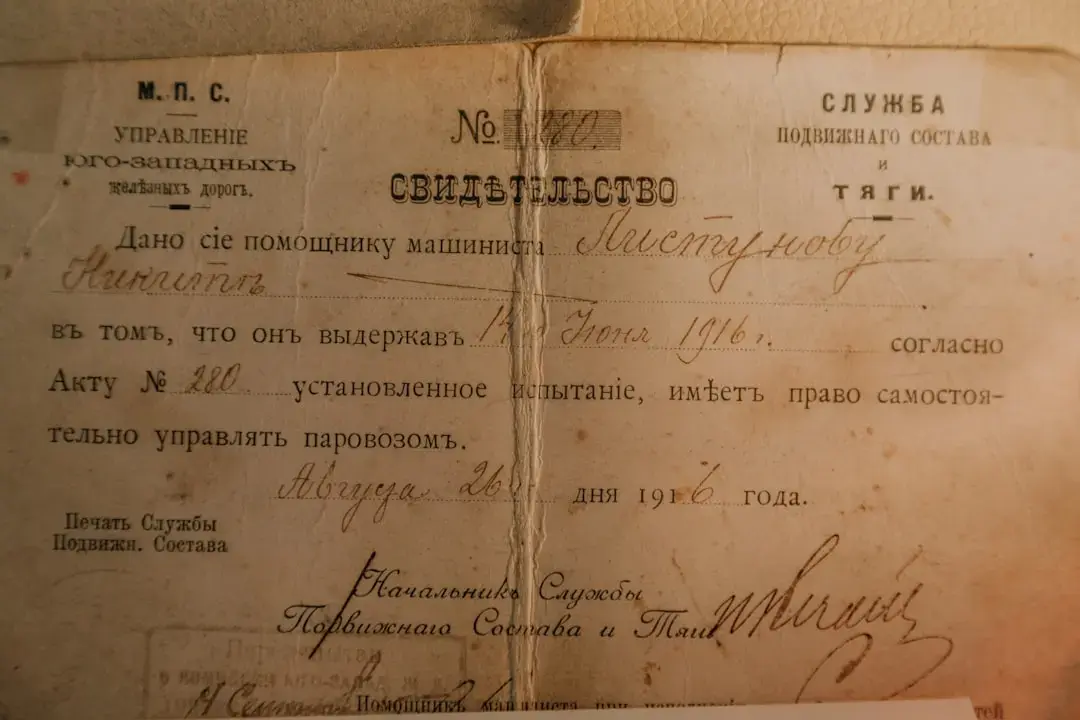 М. П. С.
УПРАВЛЕНІЕ
ЮГО-ЗАПАДНЫХЪ
желѣзныхъ дорогъ.
№ 280.
СЛУЖБА
ПОДВИЖНАГО СОСТАВА
и
ТЯГИ.
СВИДѢТЕЛЬСТВО
Дано сіе помощнику машиниста Пистунову
Никитѣ
въ томъ, что онъ выдержавъ 14го Іюня 1916 г. согласно
Акту № 280 установленное испытаніе, имѣетъ право самостоя-
тельно управлять паровозомъ.
Августа 26 дня 1916 года.
Печать Службы
Подвижн. Состава
Начальникъ Службы
Подвижнаго Состава и Тяги
Помощникъ машиниста при